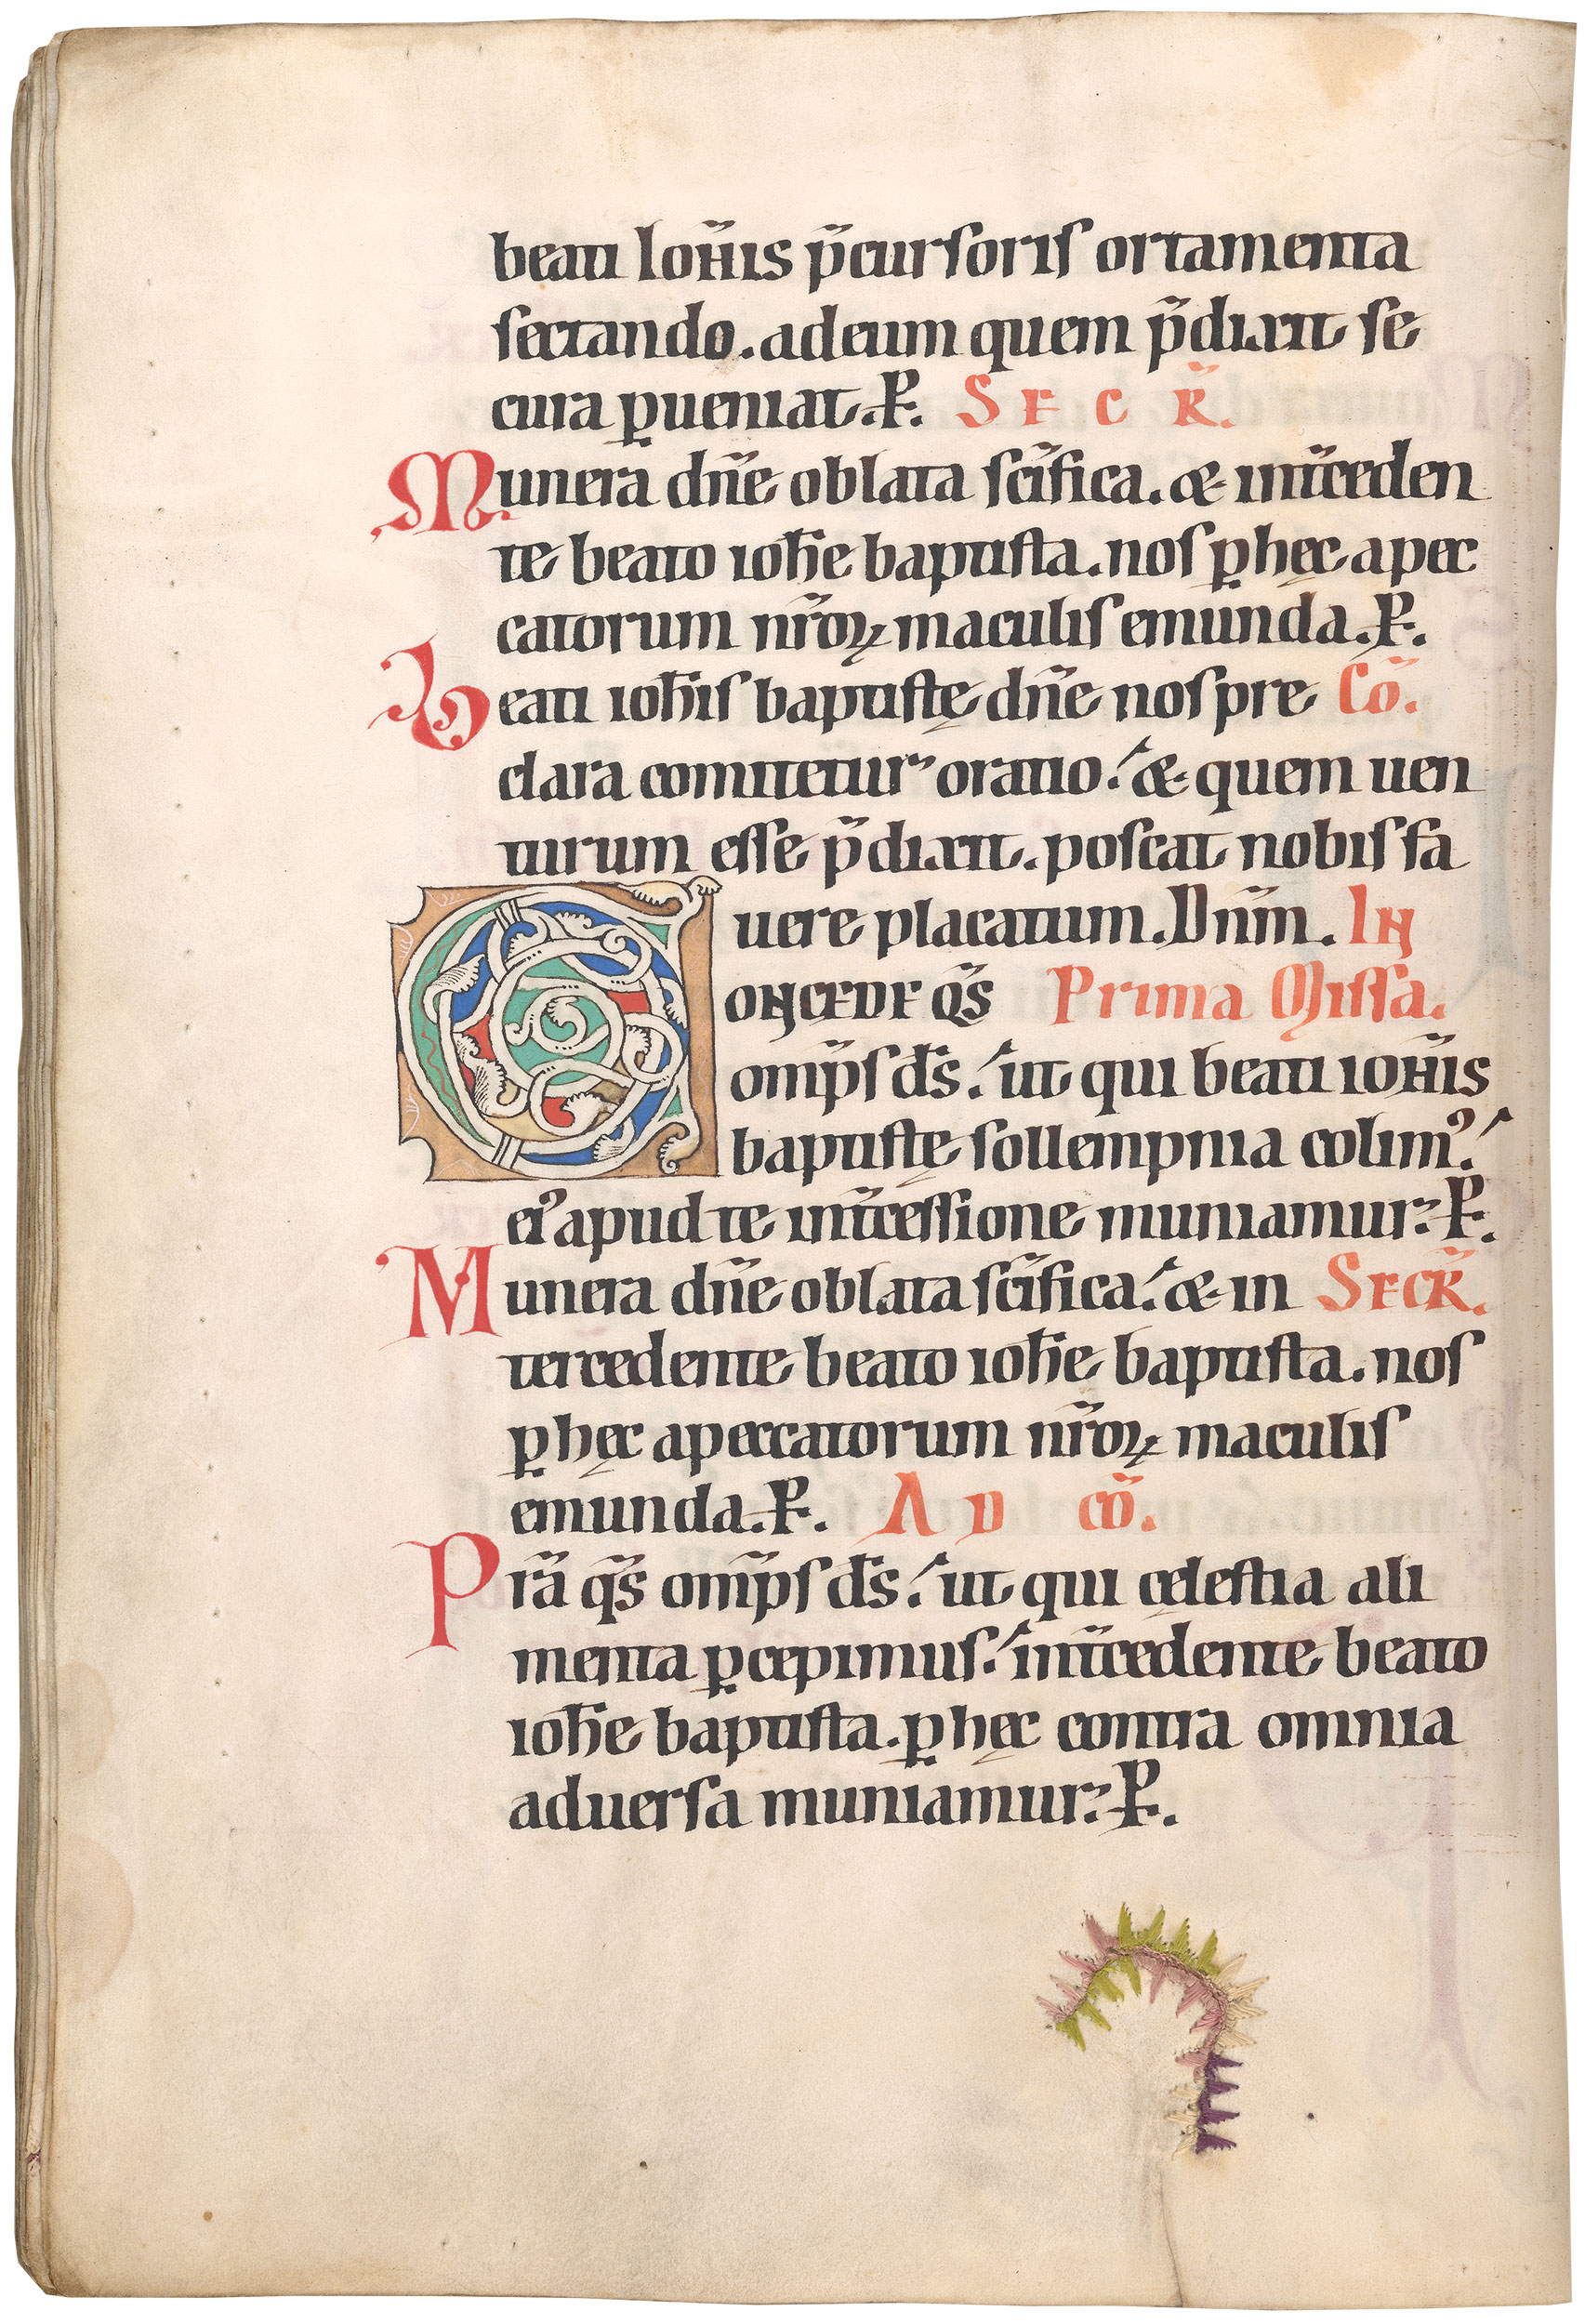 beati Ioh̄is p̄cursoris ortamenta
sectando. ad eum quem p̄dixit se
cura ꝑueniat. P. SECR̄.
Munera dn̄e oblata sc̄ifica. & int̄ceden
te beato ioh̄e baptista. nos ꝑ hęc a pec
catorum nr̄oꝝ maculis emunda. P.
Beati ioh̄is baptistę dn̄e nos pre Cō.
clara comitetur oratio. & quem uen
turum esse p̄dixit. poscat nobis fa
uere placatum. Dn̄m. IN
CONCEDE q̄s Prima Missa.
omp̄s ds̄. ut qui beati ioh̄is
baptistę sollempnia colimꝰ.
eiꝰ apud te int̄cessione muniamur. P.
Munera dn̄e oblata sc̄ifica. & in SECR̄.
tercedente beato ioh̄e baptista. nos
ꝑ hęc a peccatorum nr̄oꝝ maculis
emunda. P. AD cō.
Prā q̄s omp̄s ds̄. ut qui cęlestia ali
menta ꝑcepimus. int̄cedente beato
ioh̄e baptista. ꝑ hęc contra omnia
aduersa muniamur. P.